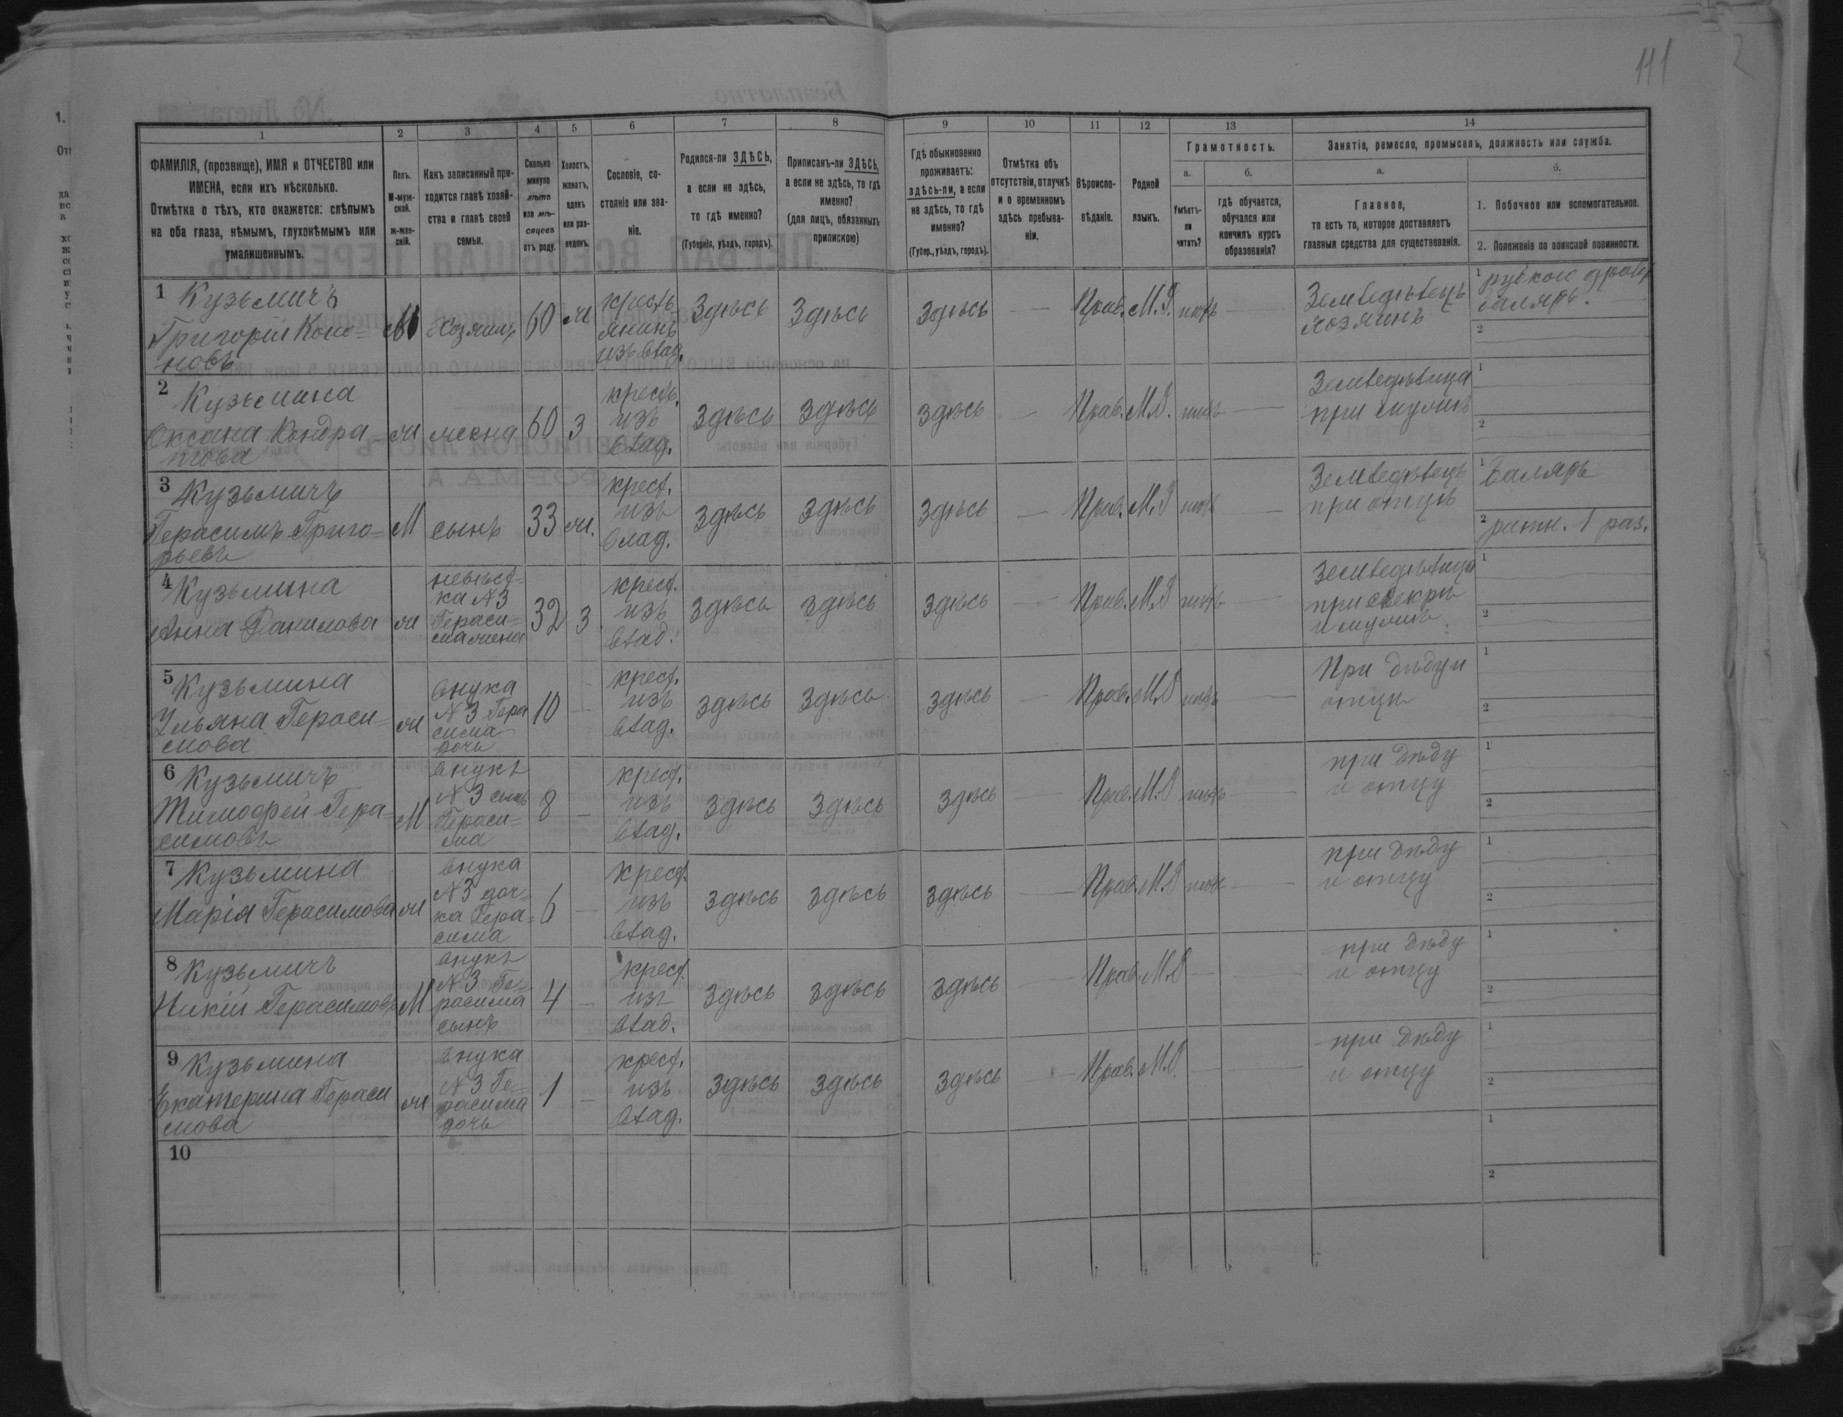 111
2
1 2 3 4 5 6 7 8 9 10 11 12 13 14
ФАМИЛІЯ, (прозвище), ИМЯ и ОТЧЕСТВО или
ИМЕНА, если ихъ нѣсколько.
Отмѣтка о тѣхъ, кто окажется: слѣпымъ
на оба глаза, нѣмымъ, глухонѣмымъ или
умалишеннымъ.
Полъ.
М-муж-
ской.
ж-жен-
скій.
Какъ записанный при-
ходится главѣ хозяй-
ства и главѣ своей
семьи.
Сколько
минуло
лѣтъ
или мѣ-
сяцевъ
отъ роду.
Холостъ,
женатъ,
вдовъ
или раз-
веденъ.
Сословіе, со-
стояніе или зва-
ніе.
Родился-ли ЗДѢСЬ,
а если не здѣсь,
то гдѣ именно?
(Губернія, уѣздъ, городъ).
Приписанъ-ли ЗДѢСЬ,
а если не здѣсь, то гдѣ
именно?
(для лицъ, обязанныхъ
припискою)
Гдѣ обыкновенно
проживаетъ:
здѣсь-ли, а если
не здѣсь, то гдѣ
именно?
(Губер., уѣздъ, городъ).
Отмѣтка объ
отсутствіи, отлучкѣ
и о временномъ
здѣсь пребыва-
ніи.
Вѣроиспо-
вѣданіе.
Родной
языкъ.
Грамотность.
а.
Умѣетъ-
ли
читать?
б.
гдѣ обучается,
обучался или
кончилъ курсъ
образованія?
Занятіе, ремесло, промыселъ, должность или служба.
а.
Главное,
то есть то, которое доставляетъ
главныя средства для существованія.
б.
1. Побочное или вспомогательное.
2. Положеніе по воинской повинности.
1 Кузьмичъ
Григорій Коно-
новъ
М хозяинъ 60 ж
крестъ
янинъ
изъ влад.
Здѣсь Здѣсь Здѣсь — Прав. М.Р. нѣтъ —
Земледѣлецъ
хозяинъ
1
валяръ.
2
2 Кузьмина
Оксана Кондра
това
ж жена 60 З
крестъ.
изъ
влад.
Здѣсь Здѣсь Здѣсь — Прав. М.Р. нѣтъ —
Земледѣлица
при мужѣ
1
2
3 Кузьмичъ
Герасимъ Григо-
рьевъ
М сынъ 33 ж.
крест.
изъ
влад.
Здѣсь Здѣсь Здѣсь — Прав. М.Р нѣтъ —
Земледѣлецъ
при отцѣ
1 валяръ
2 ратн. 1 раз.
4 Кузьмина
Анна Данилова
ж
невѣст-
ка №3
Гераси-
ма жена
32 З
крест.
изъ
влад.
Здѣсь Здѣсь Здѣсь — Прав. М.Р нѣтъ —
Земледѣлица
при свекрѣ
и мужѣ.
1
2
5 Кузьмина
Ульяна Гераси-
мова
ж
внука
№3 Гера
сима
дочь
10 —
крест.
изъ
влад.
Здѣсь Здѣсь Здѣсь — Прав. М.Р нѣтъ —
При дѣду и
отцѣ
1
2
6 Кузьмичъ
Тимофей Гера-
симовъ
М
внукъ
№3 сынъ
Гераси-
ма
8 —
крест.
изъ
влад.
Здѣсь Здѣсь Здѣсь — Прав. М.Р нѣтъ —
при дѣду
и отцу
1
2
7 Кузьмина
Марія Герасимова
ж
внука
№3 доч-
ка Гера-
сима
6 —
крест.
изъ
влад.
Здѣсь Здѣсь Здѣсь — Прав. М.Р нѣтъ —
при дѣду
и отцу
1
2
8 Кузьмичъ
Герасимовъ
М
внукъ
№3 Ге-
расима
сынъ
4 —
крест.
изъ
влад.
Здѣсь Здѣсь Здѣсь — Прав. М.Р — —
при дѣду
и отцу
1
2
9 Кузьмина
Екатерина Гераси
мова
ж
внука
№3 Ге-
расима
дочь
1 —
крест.
изъ
влад.
Здѣсь Здѣсь Здѣсь — Прав. М.Р. — —
при дѣду
и отцу
1
2
10
1
2